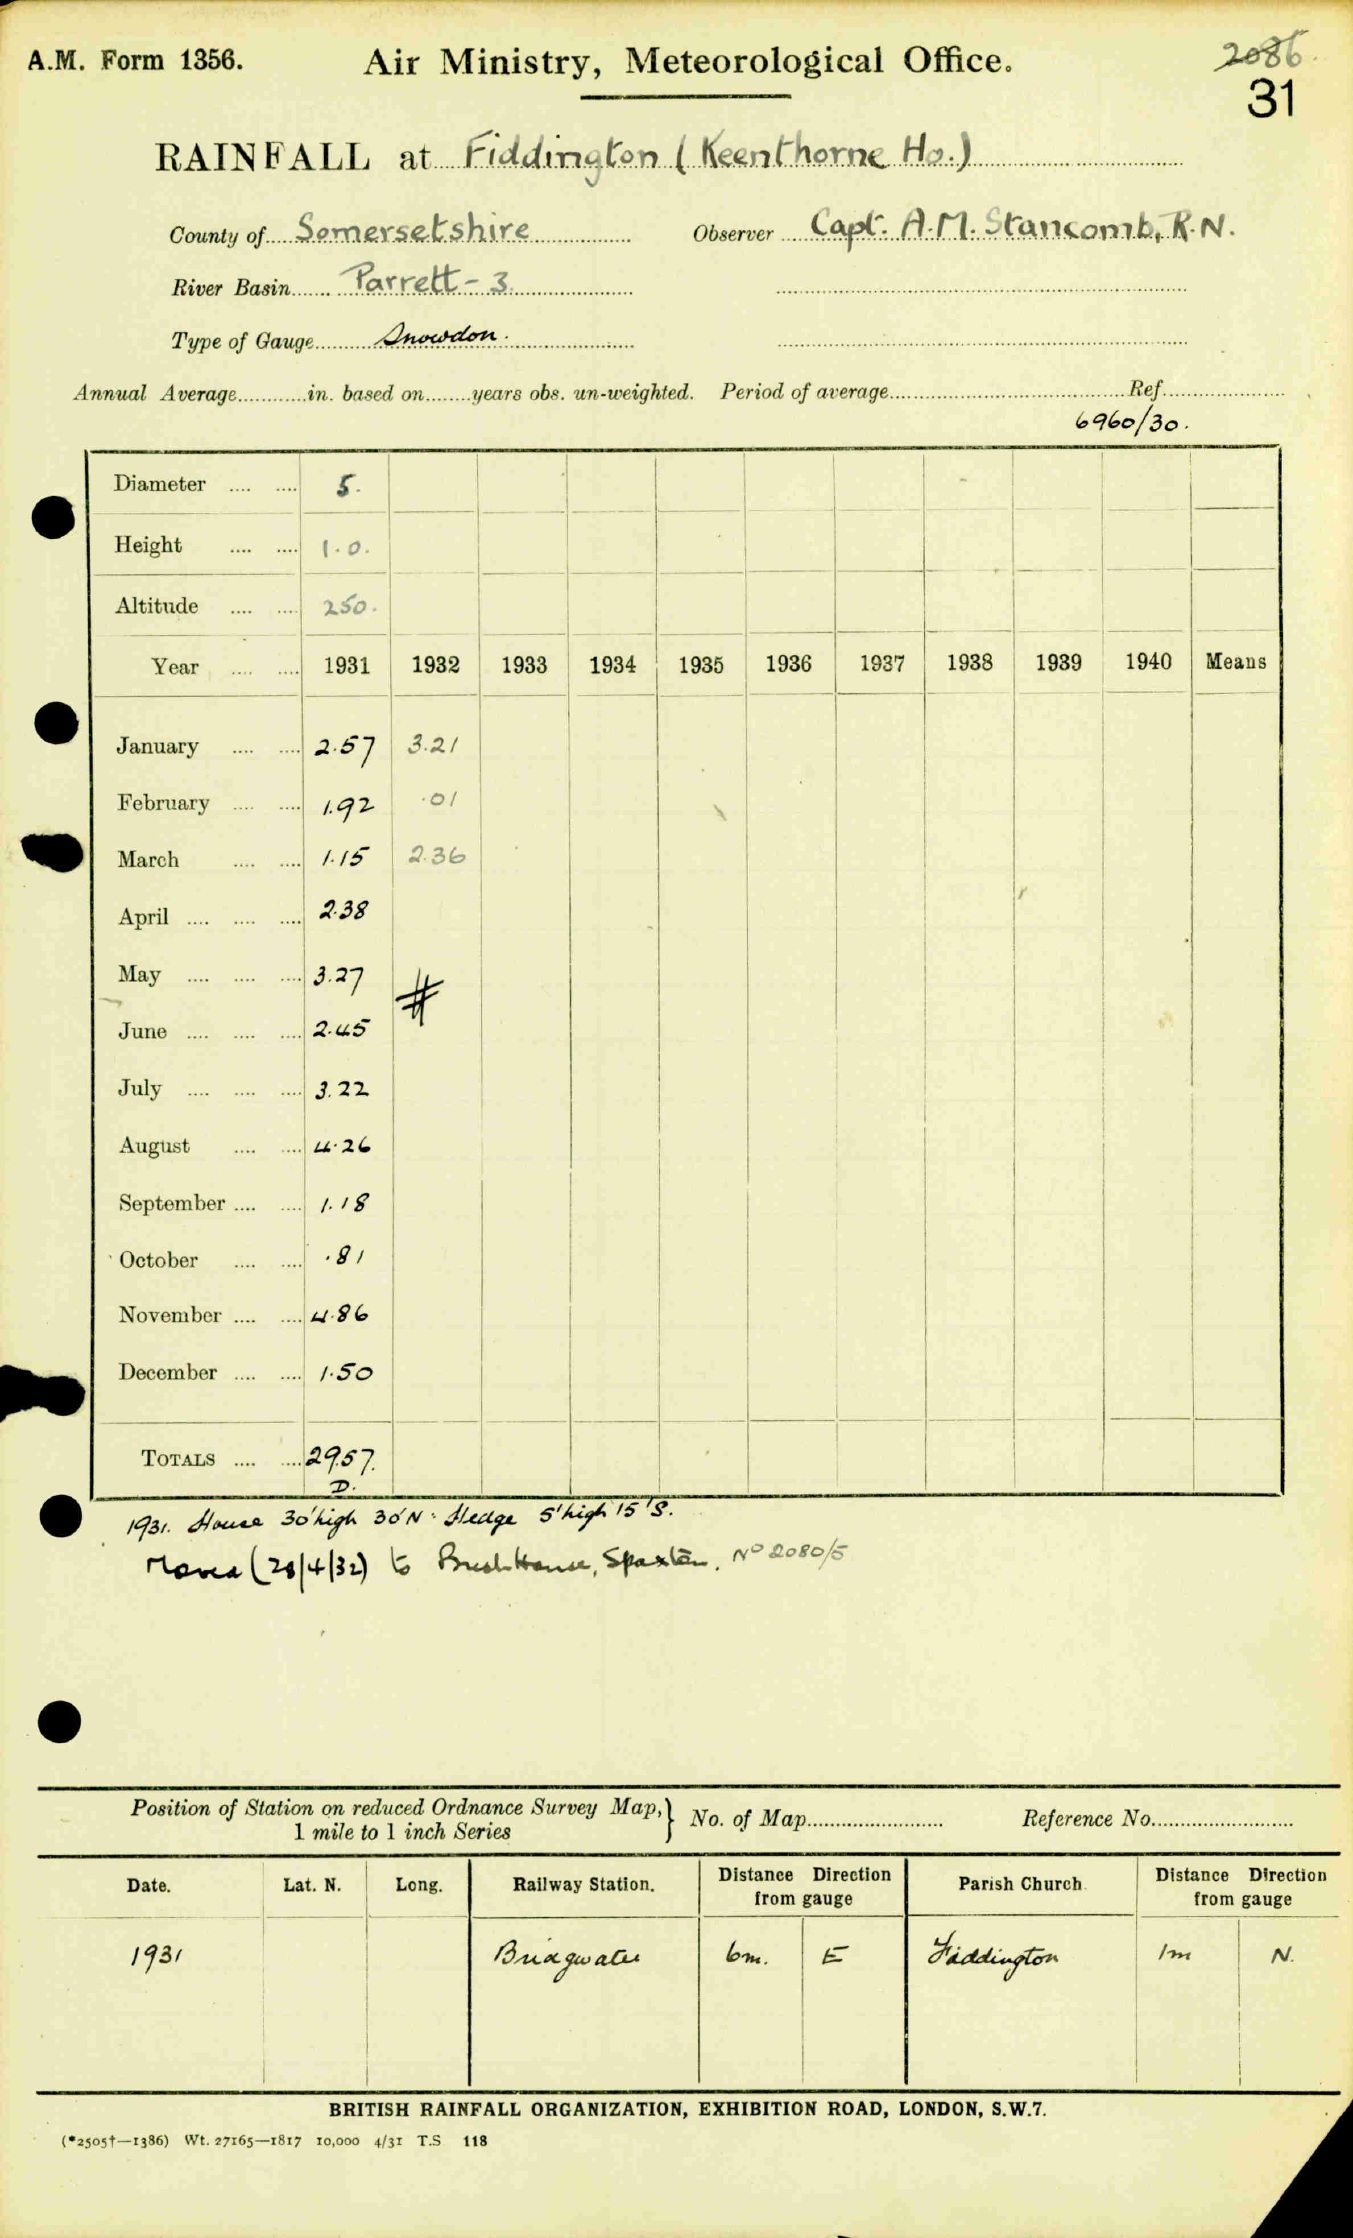 A.M. Form 1356. Air Ministry, Meteorological Office. 2086
31
RAINFALL at Fiddington (Keenthorne Ho.)
County of Somersetshire Observer Capt. A.M. Stancomb, R.N.
River Basin Parrett - 3
Type of Gauge Snowdon.
Annual Average in. based on years obs. un-weighted. Period of average Ref.
6960/30.
Diameter 5.
Height 1.0.
Altitude 250.
Year 1931 1932 1933 1934 1935 1936 1937 1938 1939 1940 Means
January 2.57 3.21
February 1.92 .01
March 1.15 2.36
April 2.38
May 3.27
#
June 2.45
July 3.22
August 4.26
September 1.18
October .81
November 4.86
December 1.50
TOTALS 29.57.
D.
1931. House 30' high 30' N. Hedge 5' high 15' S.
Moved (28/4/32) to House, Spaxton. No 2080/5
Position of Station on reduced Ordnance Survey Map, } No. of Map Reference No.
1 mile to 1 inch Series
Date. Lat. N. Long. Railway Station. Distance Direction from gauge Parish Church Distance Direction from gauge
1931 Bridgwater 6m. E Fiddington 1m N.
BRITISH RAINFALL ORGANIZATION, EXHIBITION ROAD, LONDON, S.W.7.
(*2505†—1386) Wt. 27165—1817 10,000 4/31 T.S 118